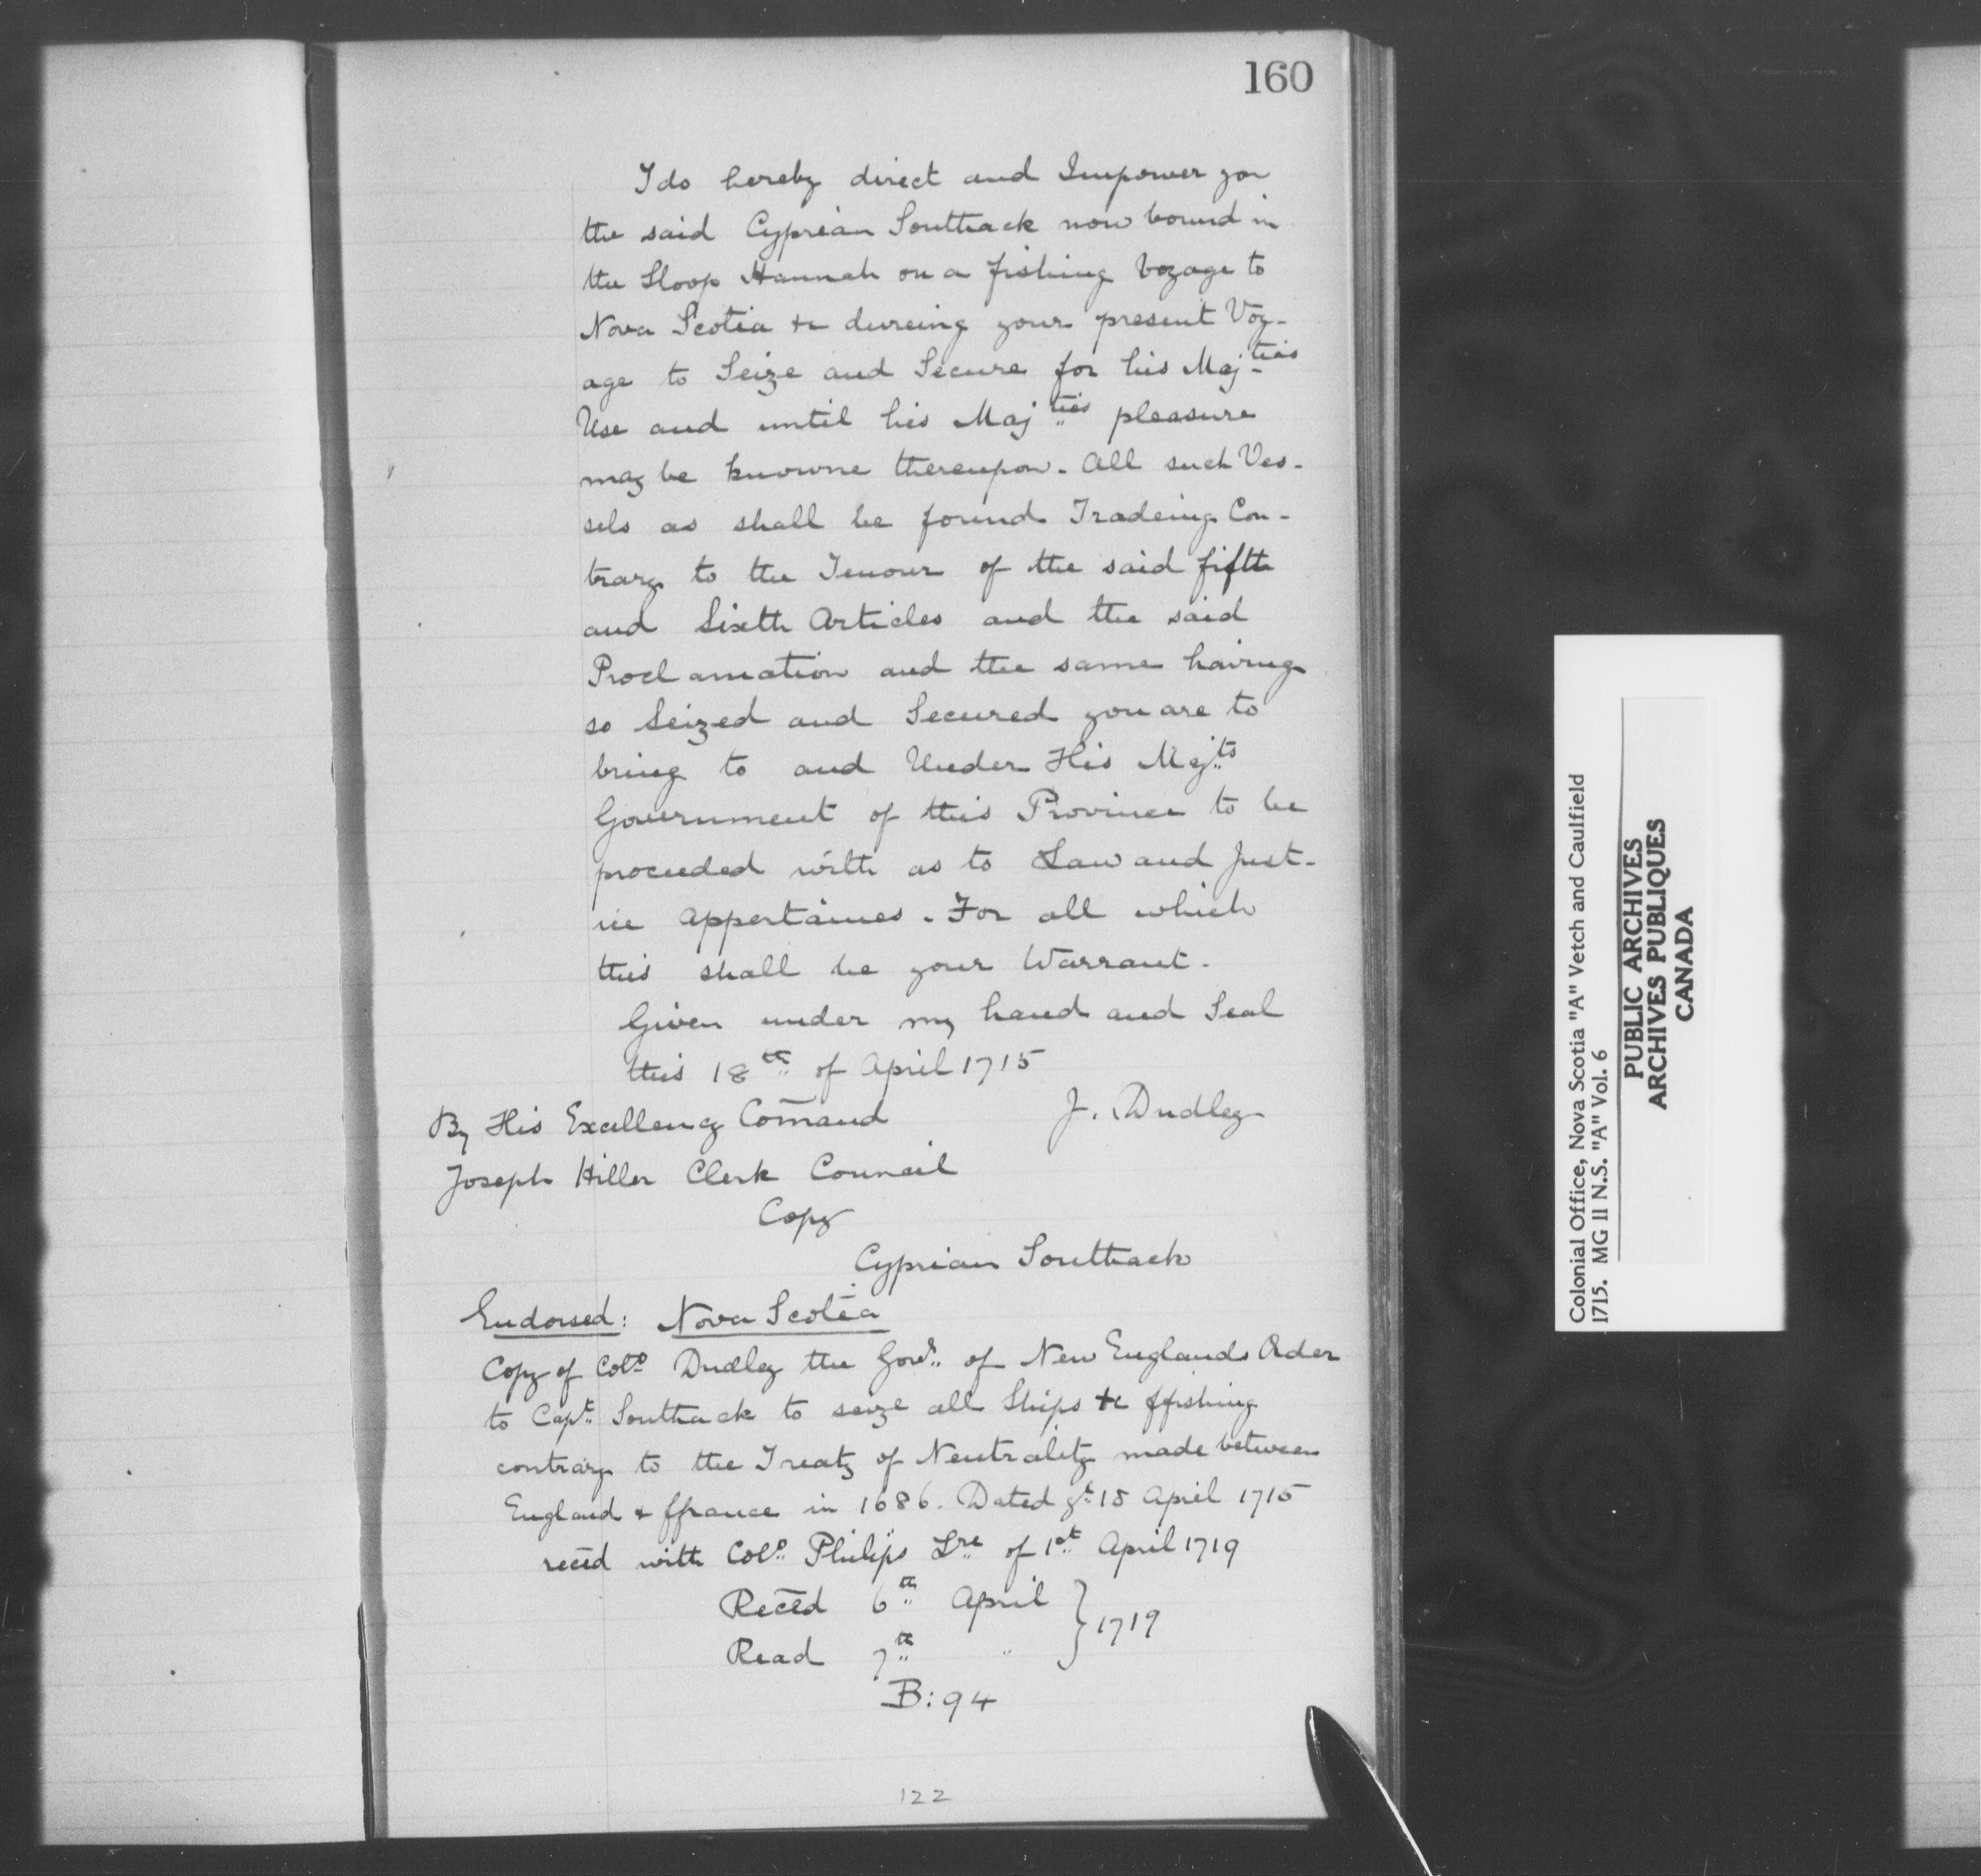 160
I do hereby direct and Impower you
the said Cyprian Southack now bound in
the Sloop Hannah on a fishing Voyage to
Nova Scotia &c dureing your present Voy-
age to Seize and Secure for his Maj-ties
Use and until his Maj ties pleasure
may be knowne thereupon. All such Ves-
sels as shall be found Tradeing Con-
trary to the Tenour of the said fifth
and Sixth Articles and the said
Proclamation and the same having
so Seized and Secured you are to
bring to and Under His Majts
Government of this Province to be
proceeded with as to Law and Just-
ice appertaines. For all which
this shall be your Warrant.
Given under my hand and Seal
this 18th of April 1715
By His Excellency Comand J. Dudley
Joseph Hiller Clerk Council
Copy
Cyprian Southack
Endorsed: Nova Scotia
Copy of Colo Dudley the Govr. of New Englands Order
to Capt. Southack to seize all Ships &c ffishing
contrary to the Treaty of Neutrality made between
England & ffrance in 1686. Dated ye 18 April 1715
recēd with Colo. Philips Lre of 1st April 1719
Recēd 6th April } 1719
Read 7th "
B: 94
122
Colonial Office, Nova Scotia "A" Vetch and Caulfield
1715. MG 11 N.S. "A" Vol. 6
PUBLIC ARCHIVES
ARCHIVES PUBLIQUES
CANADA